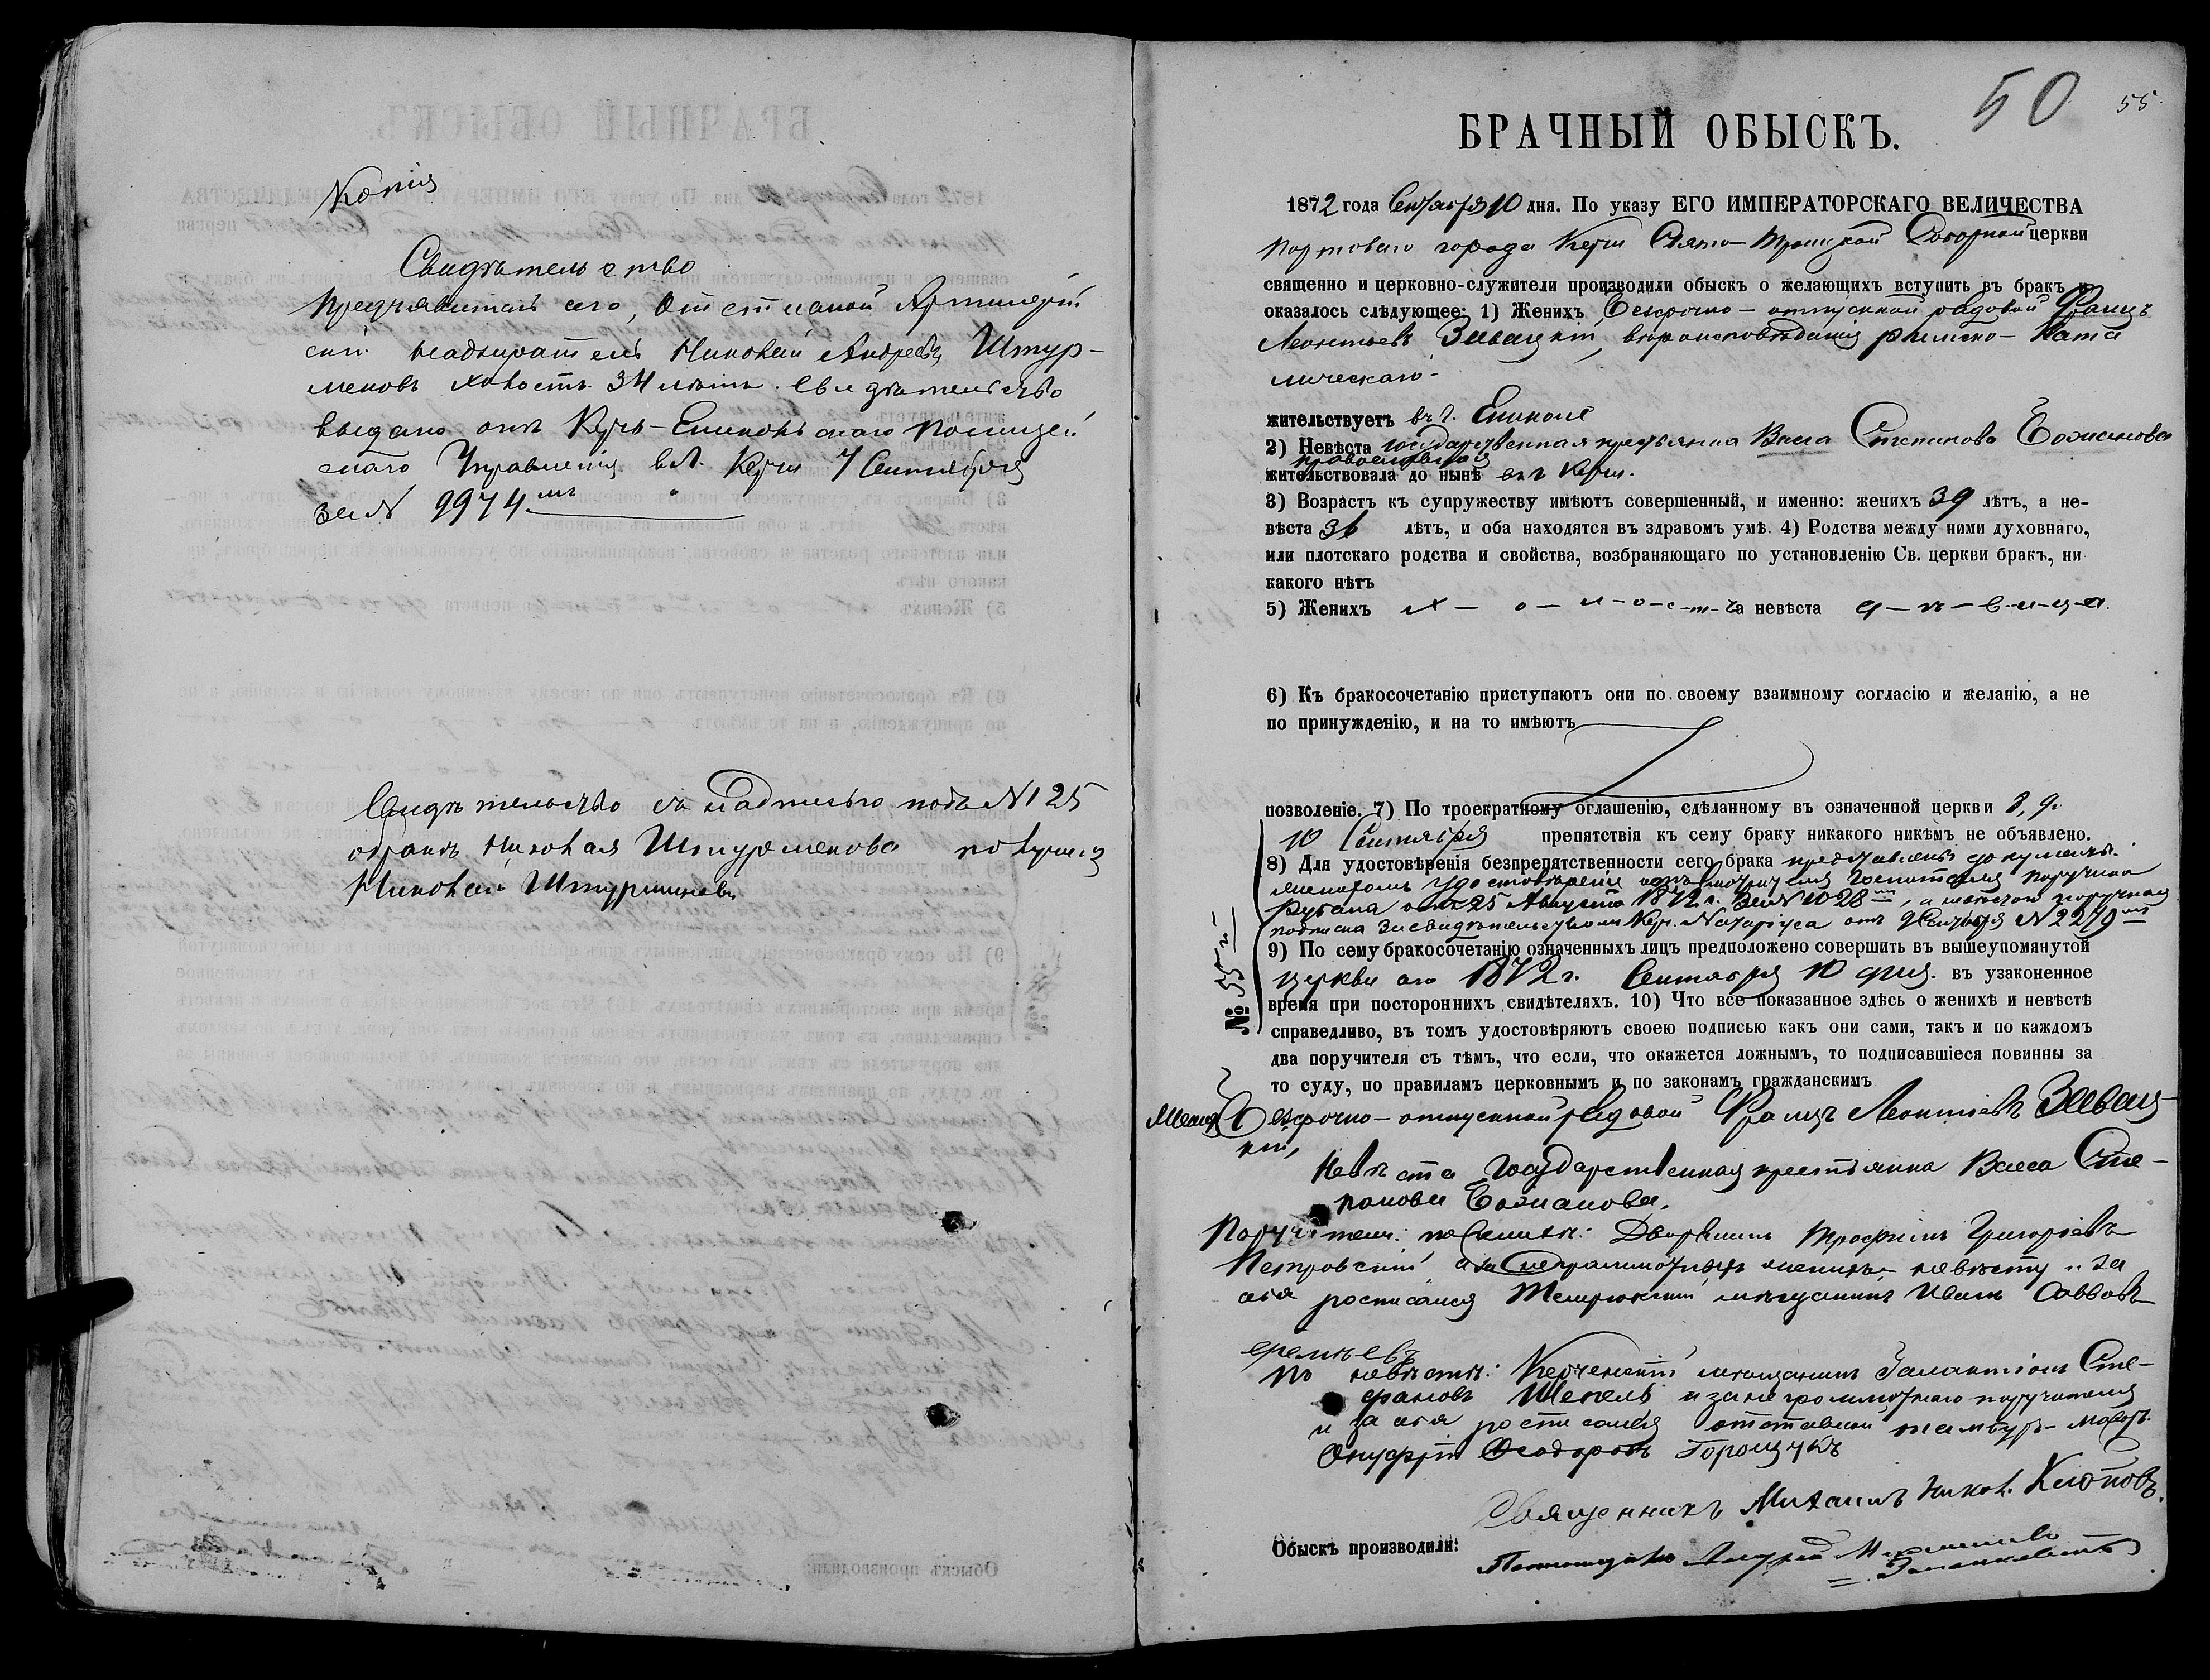 Копія
Свидѣтельство
Предъявитель сего, Отставной Артиллерій
скій надзиратель Николай Андреевъ Штур-
меновъ холостъ 34 лѣтъ. Свидѣтельство
выдано отъ Керчь-Еникольскаго Полицей
скаго Управленія въ г. Керчи 7 Сентября
за № 9974мъ
Свидѣтельство съ надписью подъ № 125
обратно Николая Штурменова получилъ
Николай Штурменовъ
50 55.
БРАЧНЫЙ ОБЫСКЪ.
1872 года Сентября 10 дня. По указу ЕГО ИМПЕРАТОРСКАГО ВЕЛИЧЕСТВА
портоваго города Керчи Свято-Троицкой Соборной церкви
священно и церковно-служители производили обыскъ о желающихъ вступить въ бракъ и
оказалось слѣдующее: 1) Женихъ Безсрочно-отпускной рядовой Францъ
Леонтьевъ вѣроисповѣданія римско-Като
лическаго-
жительствуетъ въ г. Еникале
2) Невѣста государственная крестьянка Васса Степанова Божанова
православная
жительствовала до нынѣ въ г. Керчи.
3) Возрастъ къ супружеству имѣютъ совершенный, и именно: женихъ 39 лѣтъ, а не-
вѣста 36 лѣтъ, и оба находятся въ здравомъ умѣ. 4) Родства между ними духовнаго,
или плотскаго родства и свойства, возбраняющаго по установленію Св. церкви бракъ, ни
какого нѣтъ
5) Женихъ х-о-л-о-с-т-ъ а невѣста д-ѣ-в-и-ц-а.
6) Къ бракосочетанію приступаютъ они по своему взаимному согласію и желанію, а не
по принужденію, и на то имѣютъ
позволеніе. 7) По троекратному оглашенію, сдѣланному въ означенной церкви 8, 9.
10 Сентября препятствія къ сему браку никакого никѣмъ не объявлено.
8) Для удостовѣренія безпрепятственности сего брака представлены документы:
женихомъ удостовѣреніе Госпиталя поручика
отъ 25 Августа 1872 г. за № 1028мъ, а невѣстою поручная
подписка засвидѣтельств. Кер. Нотаріуса отъ 9 Сентября № 2279мъ
9) По сему бракосочетанію означенныхъ лицъ предположено совершить въ вышеупомянутой
церкви 1872 г. Сентября 10 дня. въ узаконенное
№ 55й
время при постороннихъ свидѣтеляхъ. 10) Что все показанное здѣсь о женихѣ и невѣстѣ
справедливо, въ томъ удостовѣряютъ своею подписью какъ они сами, такъ и по каждомъ
два поручителя съ тѣмъ, что если, что окажется ложнымъ, то подписавшіеся повинны за
то суду, по правиламъ церковнымъ и по законамъ гражданскимъ
Безсрочно-отпускной рядовой Францъ Леонтьевъ
кій,
Невѣста Государственная крестьянка Васса Сте-
панова Божанова.
Поручители: по женихѣ: Дворянинъ Трофимъ Григорьевъ
Петровскій а за неграмотныхъ невѣсту и за
себя росписался Темрюкскій мѣщанинъ Иванъ Саввовъ
Еремѣевъ
По невѣстѣ: Керченскій мѣщанинъ Галактіонъ Сте-
фановъ Шепель и за неграмотнаго поручителя
и за себя росписался отставной тамбуръ-мажоръ
Онуфрій Ѳеодоровъ Горощукъ
Священникъ Михаилъ Никол. Клоповъ.
Обыскъ производили: